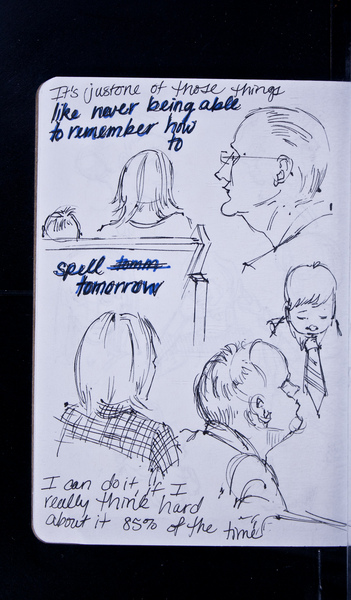 It's just one of those things
like never being able
to remember how
to
spell tomm
tomorrow
I can do it if I
really think hard
about it 85% of the time